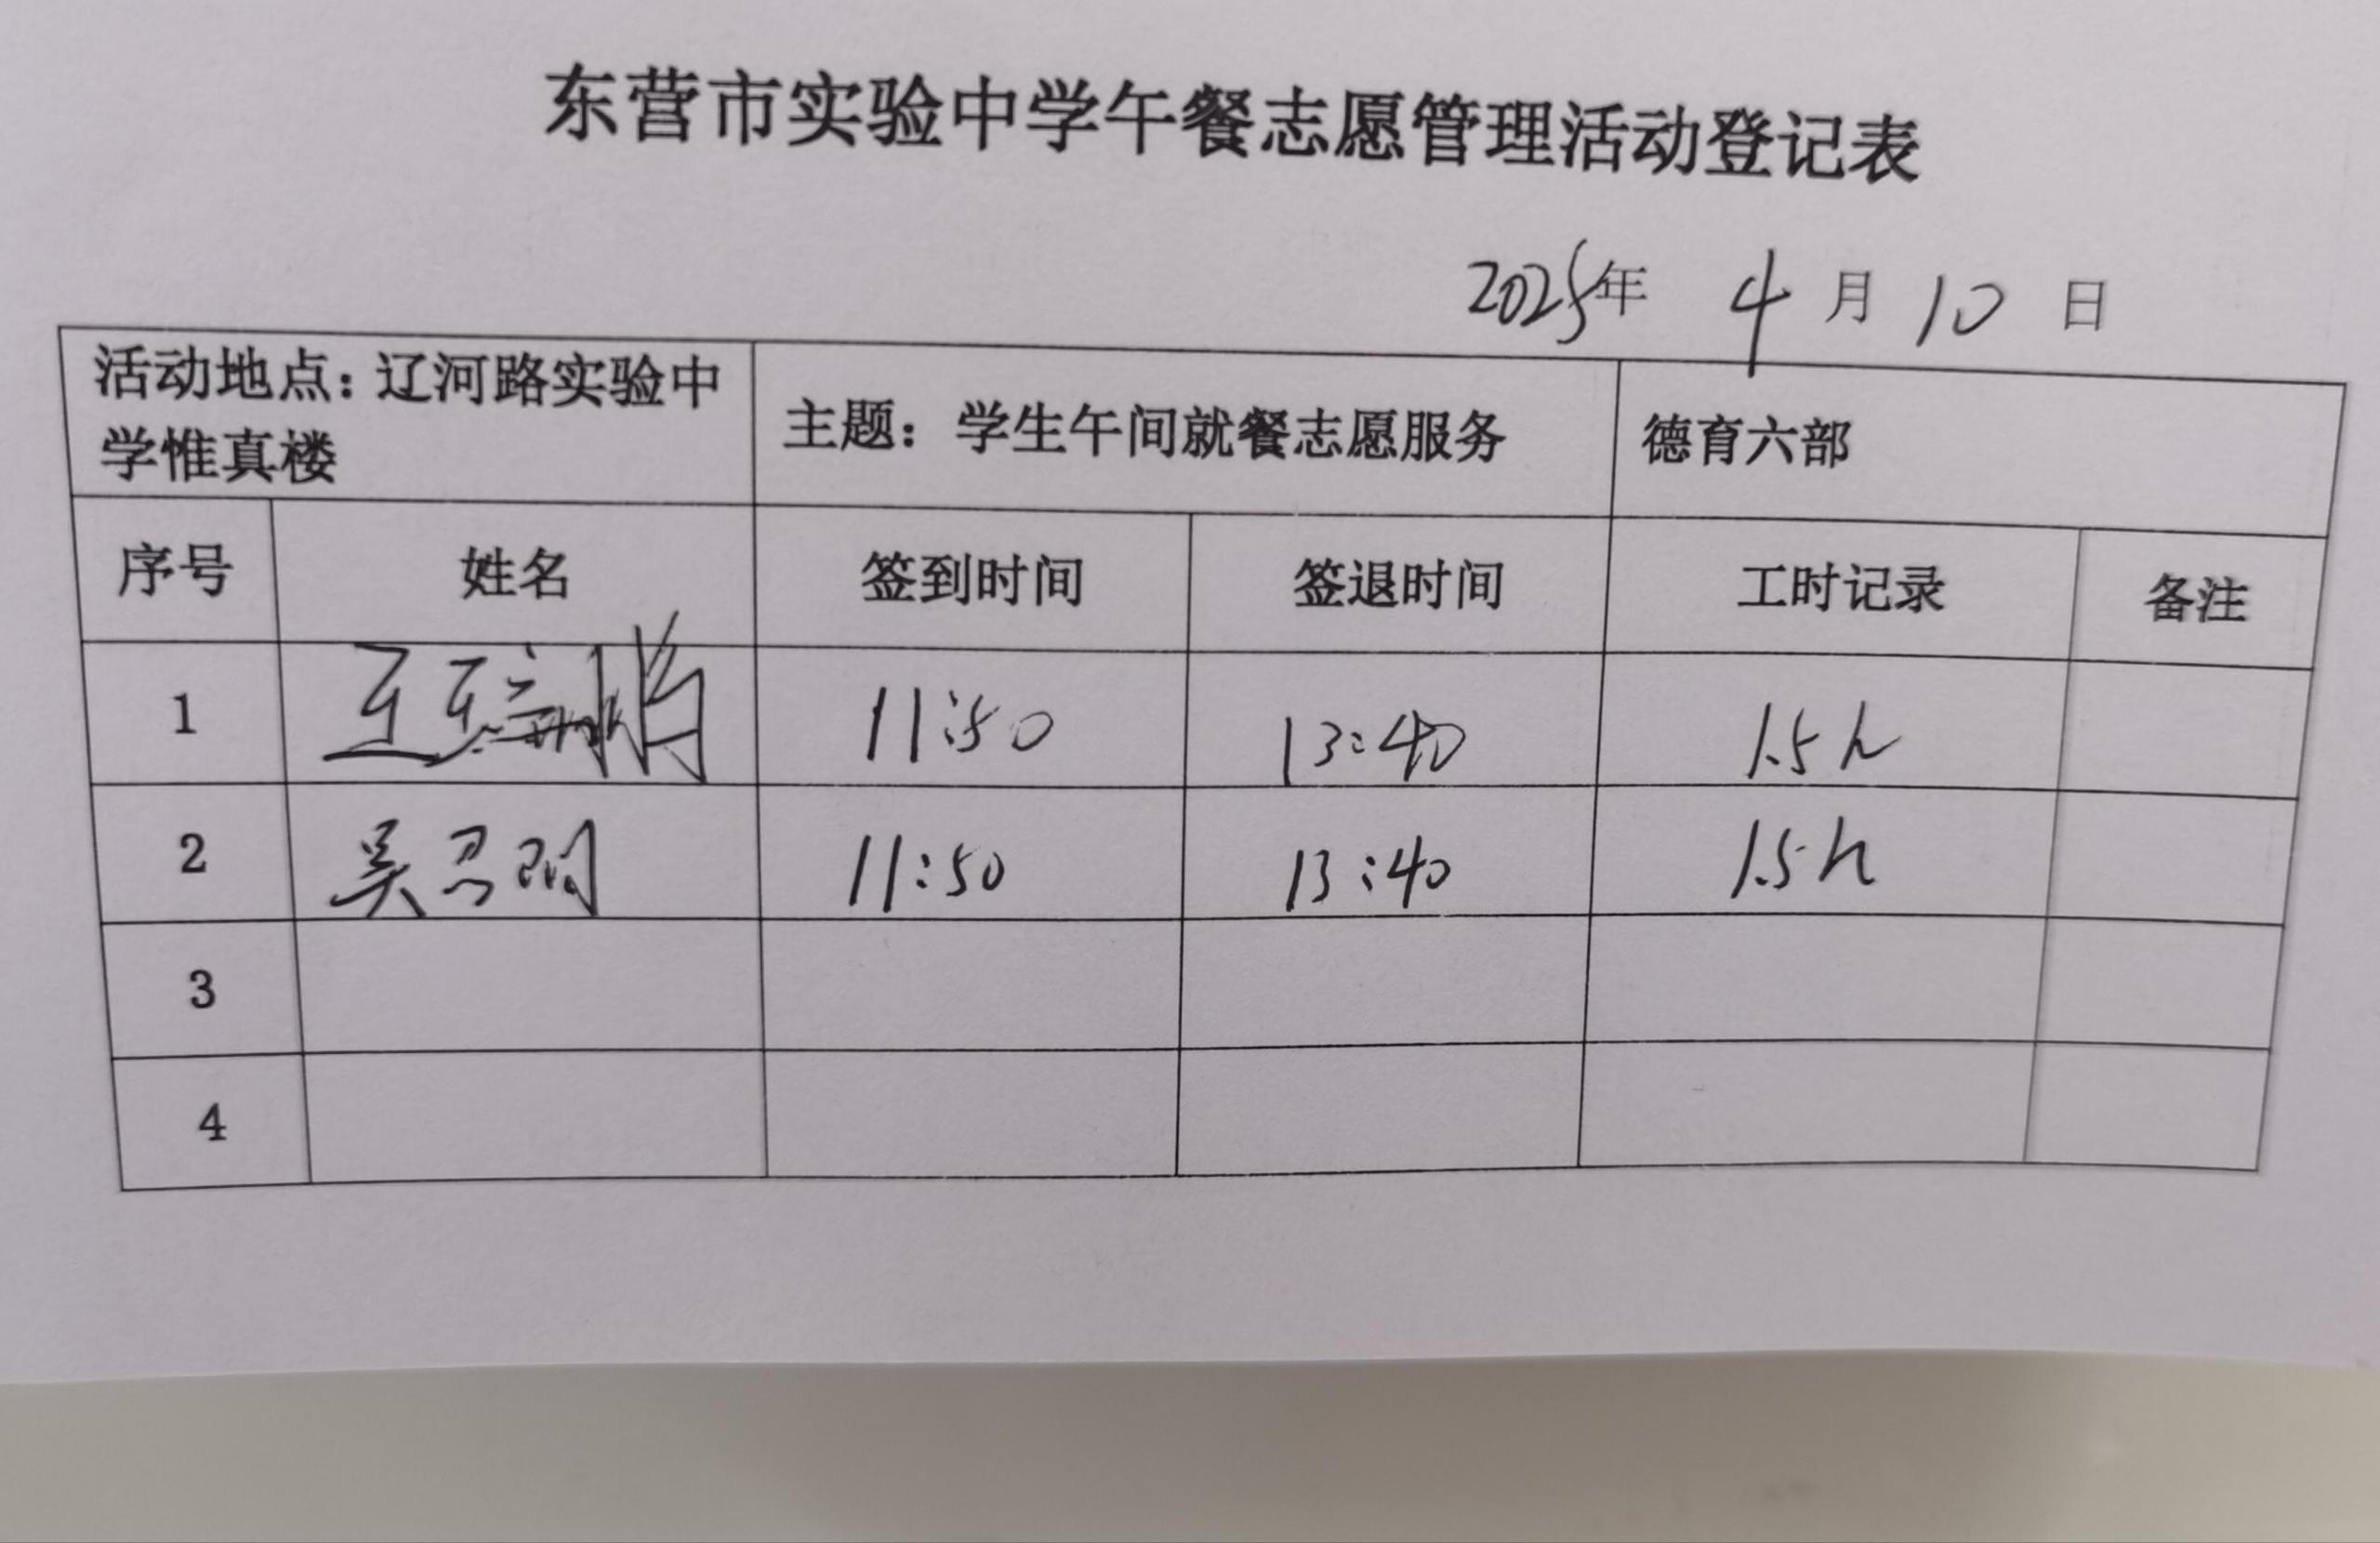 东营市实验中学午餐志愿管理活动登记表
2025年 4月10日
活动地点：辽河路实验中
学惟真楼
主题：学生午间就餐志愿服务
德育六部
序号 姓名 签到时间 签退时间 工时记录 备注
1 11:50 13:40 1.5h
2 吴 11:50 13:40 1.5h
3
4